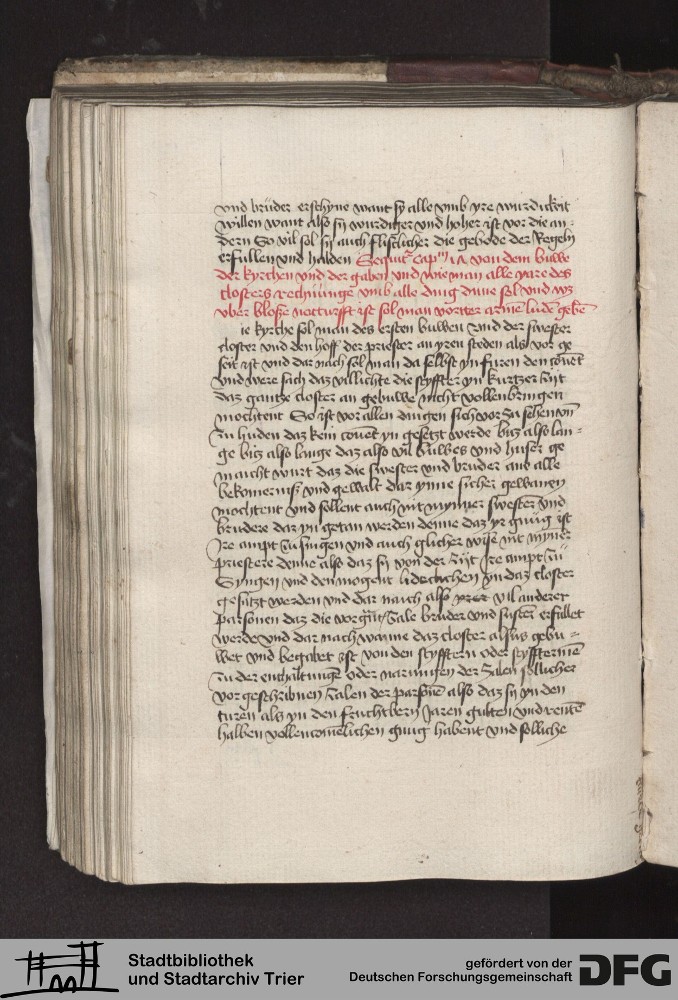 vnd brüder erschyne want sy alle vmb yre wurdickeit
willen want also sy wurdiger vnd hoher ist vor die an-
dern So vil sol sy auch flislicher die gebode der Regeln
erfullen vnd halden Sequitur capm von dem buwe
der kyrchen vnd der gaben vnd wie man alle yare des
closters rechnunge vmb alle ding dune sol vnd wz
vber bloße notturfft ist sol man vorter armē ludē gebē
ie kyrche sol man des ersten buwen vnd der swester
closter vnd den hoff der priester an yren steden als vor ge
seit ist vnd dar nach sol man da selbst yn furen den couēt
vnd were sach daz villichte die styffter yn kurtzer zijt
daz gantze closter an gebuwe nicht vollenbringen
mochtent So ist vor allen dingen sich vor zu sehen vn̄
zu huden daz kein couēt yn gesetzt werde biz also lan-
ge biz also lange daz also vil buwes vnd huser ge
maicht wurt daz die swester vnd bruder ane alle
bekomerniß vnd gewalt dar ynne sicher gewanen
mochtent vnd sollent auch nit mynner swestern vnd
brudere dar yn getan werden denne daz yr gnug ist
Ire ampt zu singen vnd auch glicher wise nit myner
priestere denne also daz sy von der zijt Ire ampt zu
Syngen vnd den mogent lideclichen yn daz closter
gesatzt werden vnd dar naich also vil anderer
parsonen daz die vorgnt zale bruder vnd suster erfullet
werde vnd dar nach wanne daz closter alsus gebu-
wet vnd begabet ist von den styfftern oder styffterinē
zu der enthaltunge oder narungen der zalen sollicher
vorgeschribnen zalen der parsonē also daz sy yn den
turen als yn den fruchtbern Jaren gulten vnd rentē
halben vollencomelichen gnug habent vnd solliche
Stadtbibliothek
und Stadtarchiv Trier
gefördert von der
Deutschen Forschungsgemeinschaft
DFG